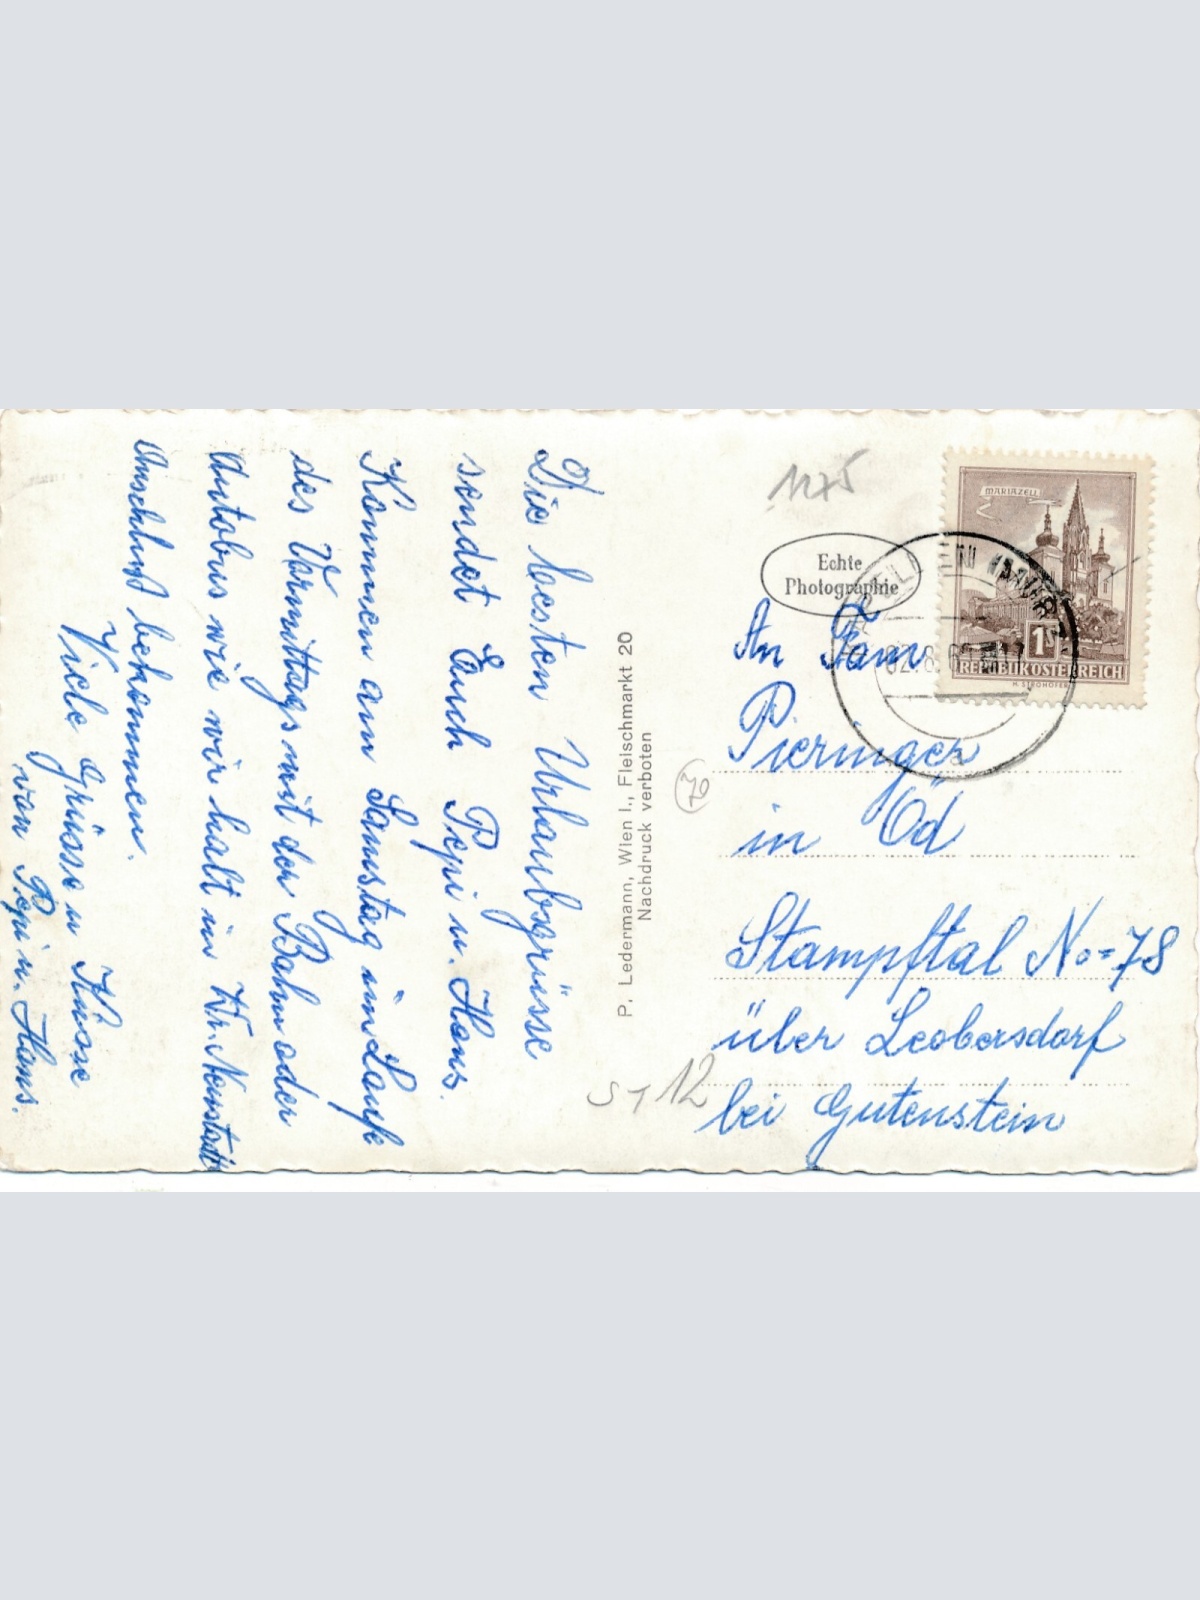 Die besten Urlaubsgrüsse
sendet Euch Pepi u. Hans.
Kommen am Samstag im Laufe
des Vormittags mit der Bahn oder
Autobus wie wir halt in Wr. Neustadt
Anschluß bekommen.
Viele Grüsse u Küsse
von Pepi u. Hans.
P. Ledermann, Wien I., Fleischmarkt 20
Nachdruck verboten
1175
Echte
Photographie
MARIAZELL
1S
REPUBLIK ÖSTERREICH
An Fam
Pieringer
in Öd
Stampftal No=78
über Leobersdorf
bei Gutenstein
70
ST 12